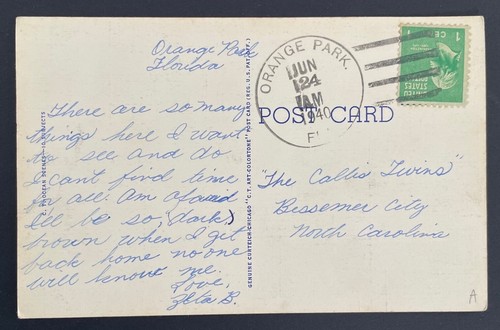 Orange Park
Florida
There are so many
things here I want
to see and do
I cant find time
for all. Am afraid
I'll be so, dark,
brown when I get
back home no one
will know me.
Love,
Zeta B.
C. 9—OCEAN SCENES—10 SUBJECTS
GENUINE CURTEICH-CHICAGO "C.T. ART-COLORTONE" POST CARD (REG. U.S. PAT. OFF.)
POST CARD
ORANGE PARK.
JUN
24
AM
1940
FLA
1 CENT
UNITED
STATES
"The Callis Twins"
Bessemer City
North Carolina
A